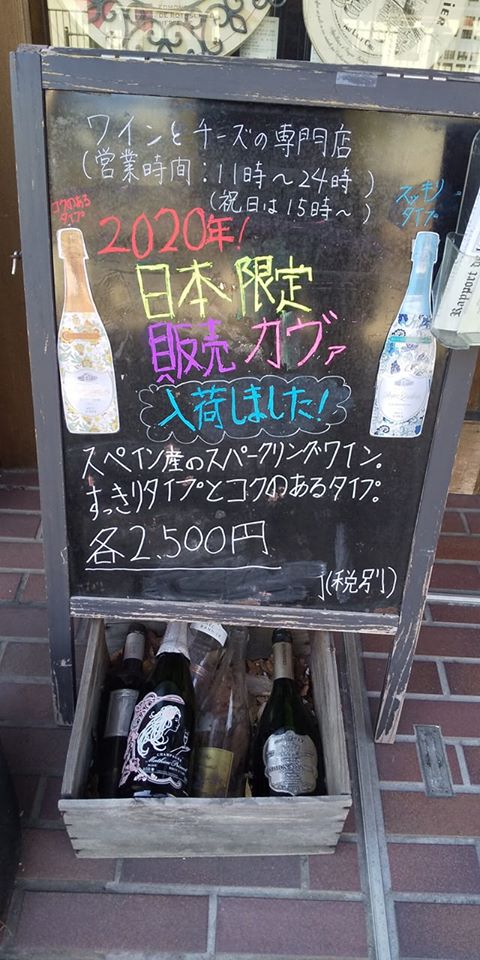 ワインとチーズの専門店
(営業時間：11時～24時)
(祝日は15時～)
コクのある
タイプ
スッキリ
タイプ
2020年!
日本限定
販売カヴァ
入荷しました!
スペイン産のスパークリングワイン。
すっきりタイプとコクのあるタイプ。
各2,500円
(税別)
Rapport